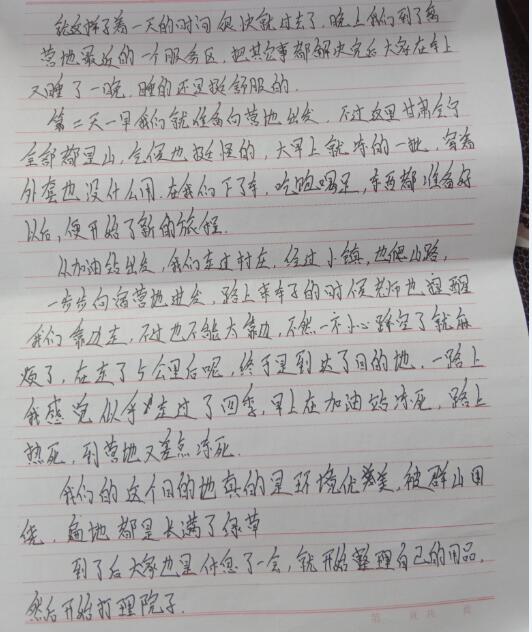 就这样子着一天的时间很快就过去了，晚上我们到了离
营地最近的一个服务区，把其它事都解决完后大家在车上
又睡了一晚，睡的还是挺舒服的。
第二天一早我们就准备向营地出发，不过这里甘肃会宁
全部都是山，气候也挺怪的，大早上就冻的一批，穿着
外套也没什么用，在我们下了车，吃饱喝足，东西都准备好
以后，便开始了新的旅程。
从加油站出发，我们走过村庄，经过小镇，也爬山路，
一步步向宿营地进发，路上来车子的时候老师也提醒
我们靠边走，不过也不能太靠边，不然一不小心踩空了就麻
烦了，在走了5公里后呢，终于是到达了目的地，一路上
我感觉似乎走过了四季，早上在加油站冻死，路上
热死，到营地又差点冻死。
我们的这个目的地真的是环境优美，被群山围
绕，遍地都是长满了绿草
到了后大家也是休息了一会，就开始整理自己的用品，
然后开始打理院子。
第 页 共 页